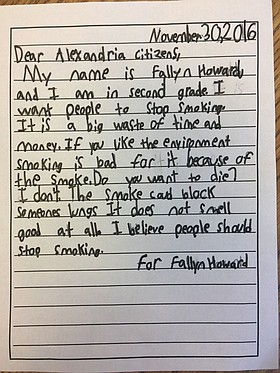 November 30, 2016
Dear Alexandria citizens,
My name is Fallyn Howard,
and I am in second grade I
want people to stop smoking.
It is a big waste of time and
money. If you like the environment
smoking is bad for it because of
the smoke. Do you want to die?
I don't. The smoke coud block
someones lungs It does not smell
good at all. I believe people should
stop smoking.
For Fallyn Howard